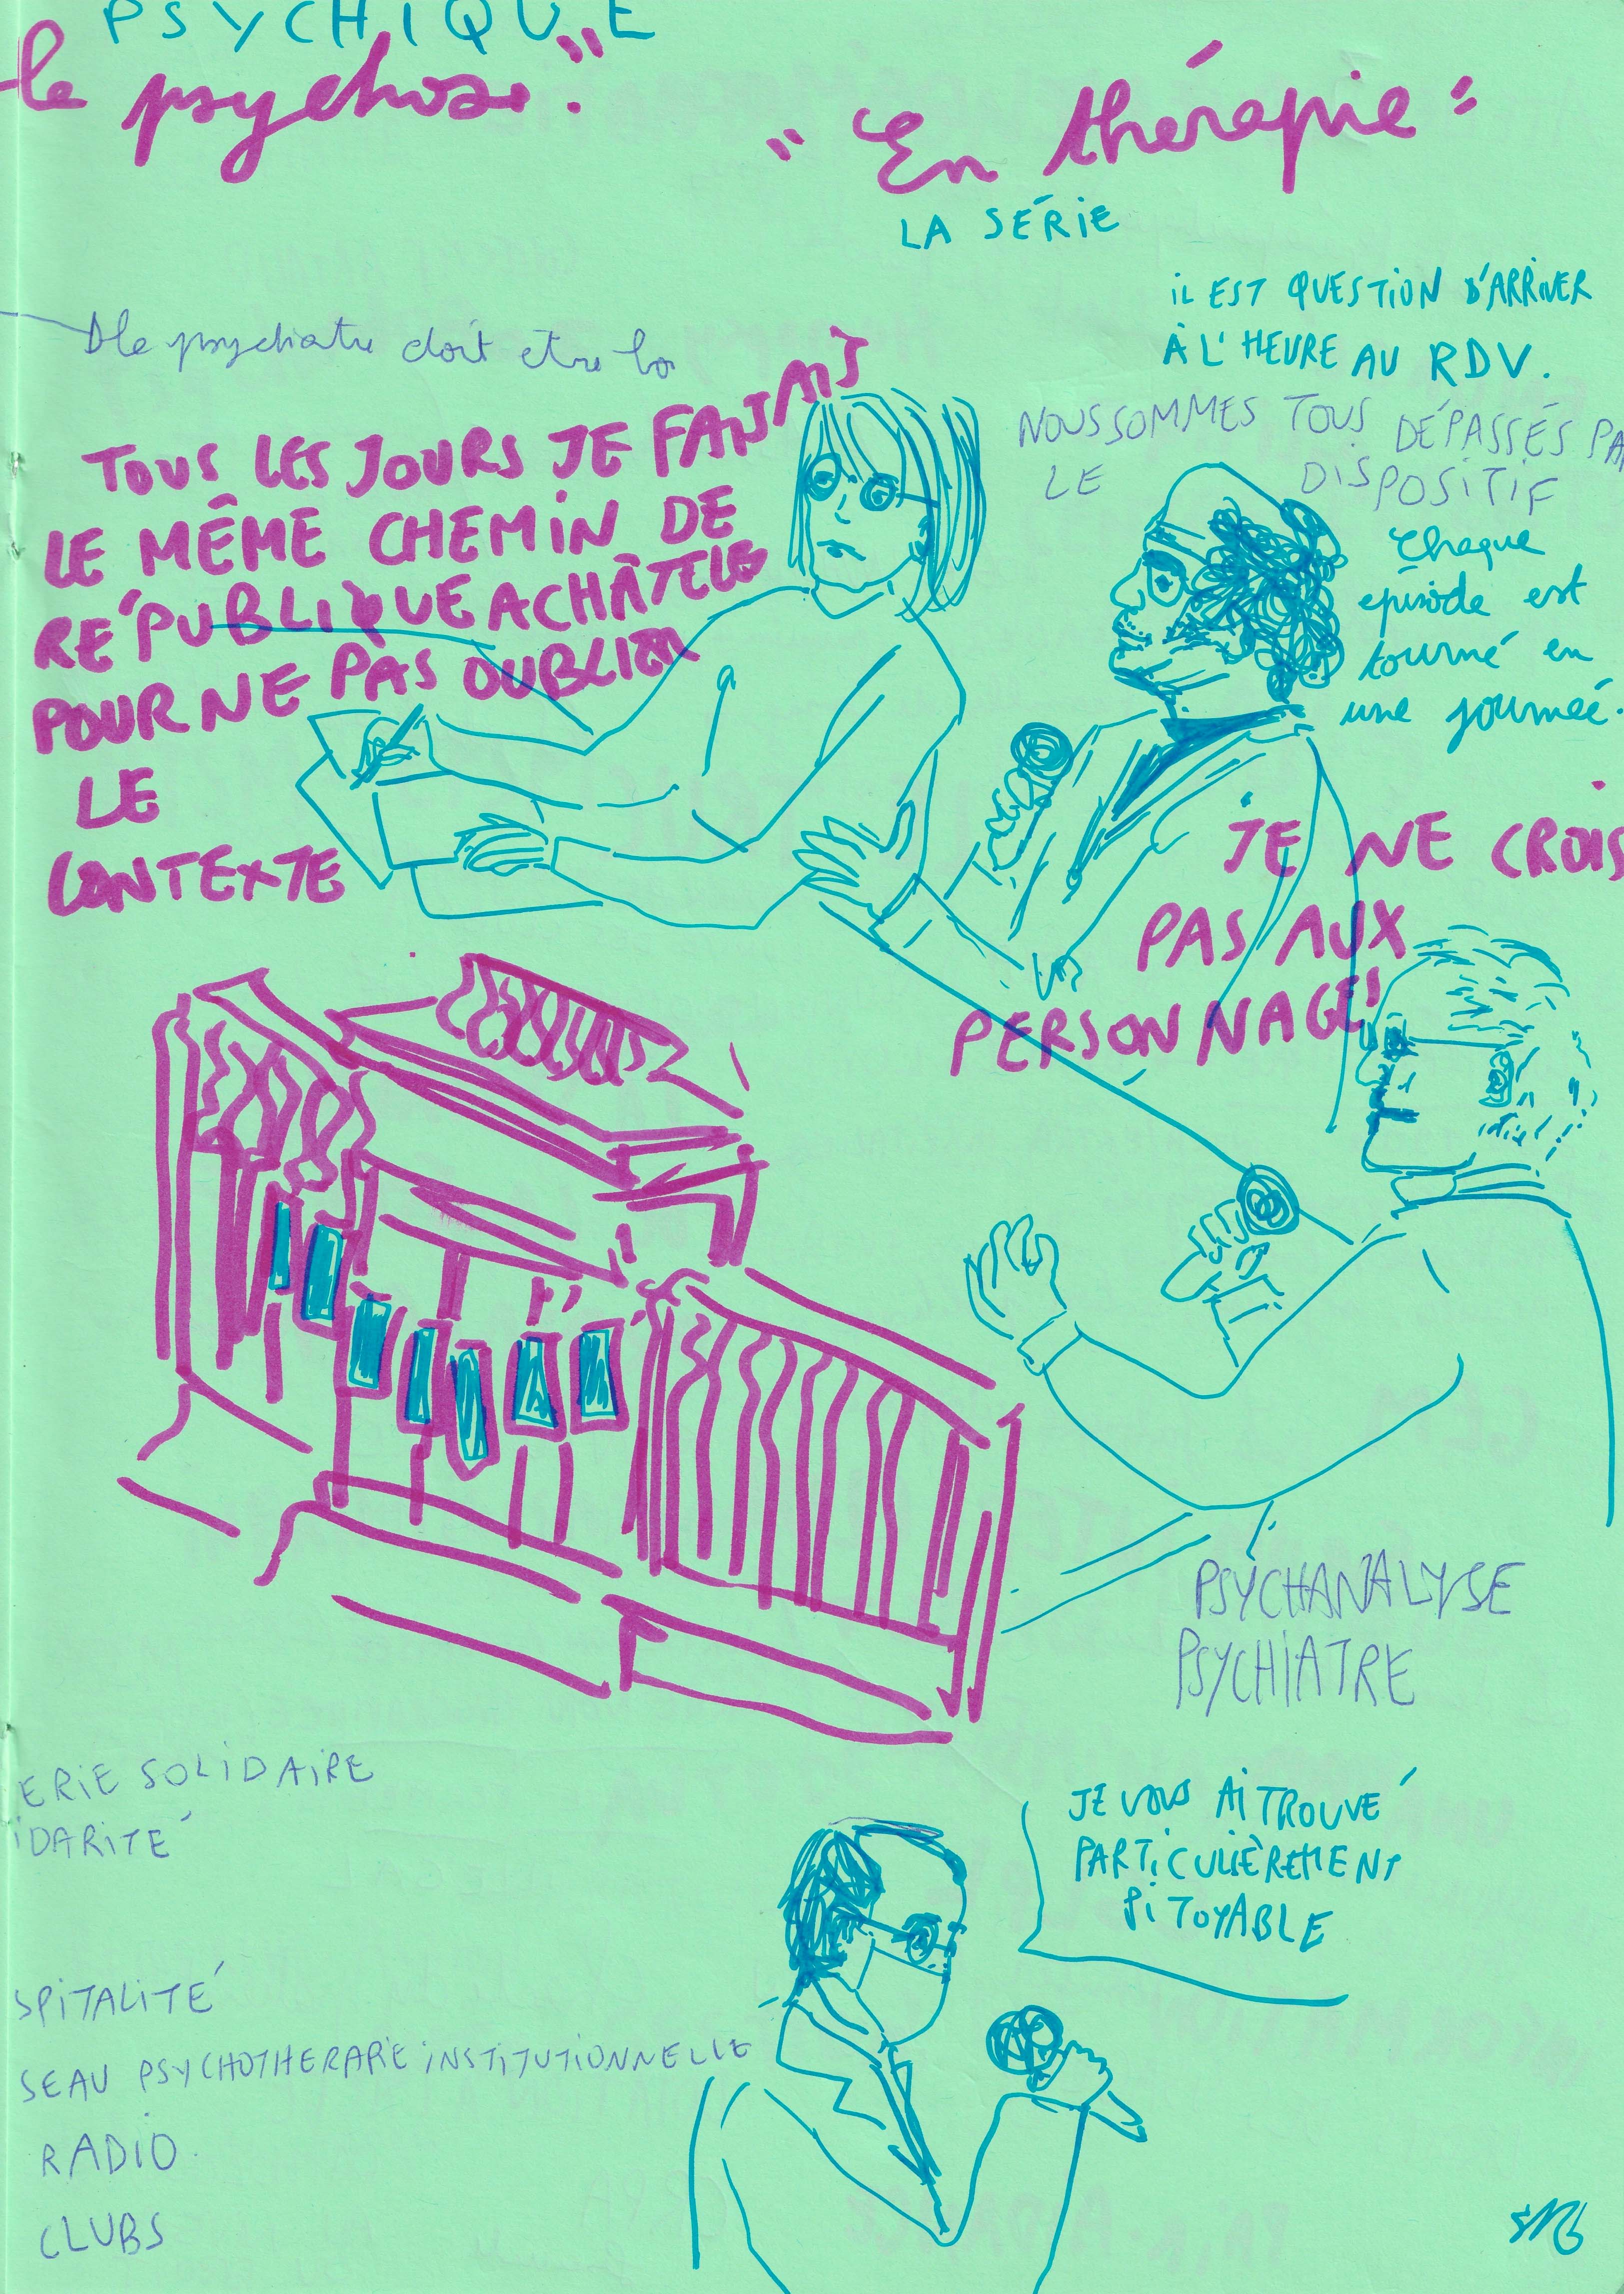 PSYCHIQUE
le psychose."
"En thérapie"
LA SÉRIE
iL EST QUESTION D'ARRIVER
À L'HEURE AU RDV.
Dle psychiatre doit etre
NOUS SOMMES TOUS DÉPASSÉS PA
LE DISPOSITIF
TOUS LES JOURS JE FAISAIS
LE MÊME CHEMIN DE
RÉPUBLIQUE A CHÂTELET
POUR NE PAS OUBLIER
LE
CONTEXTE
Chaque
épisode est
tourné en
une journeé.
JE NE CROIS
PAS AUX
PERSONNAGE!
PSYCHANALYSE
PSYCHIATRE
ERIE SOLIDAIRE
IDARITÉ
JE VOUS AI TROUVÉ
PARTICULIÈREMENT
PITOYABLE
SPITALITÉ
SEAU PSYCHOTHERAPIE INSTITUTIONNELLE
RADIO
CLUBS